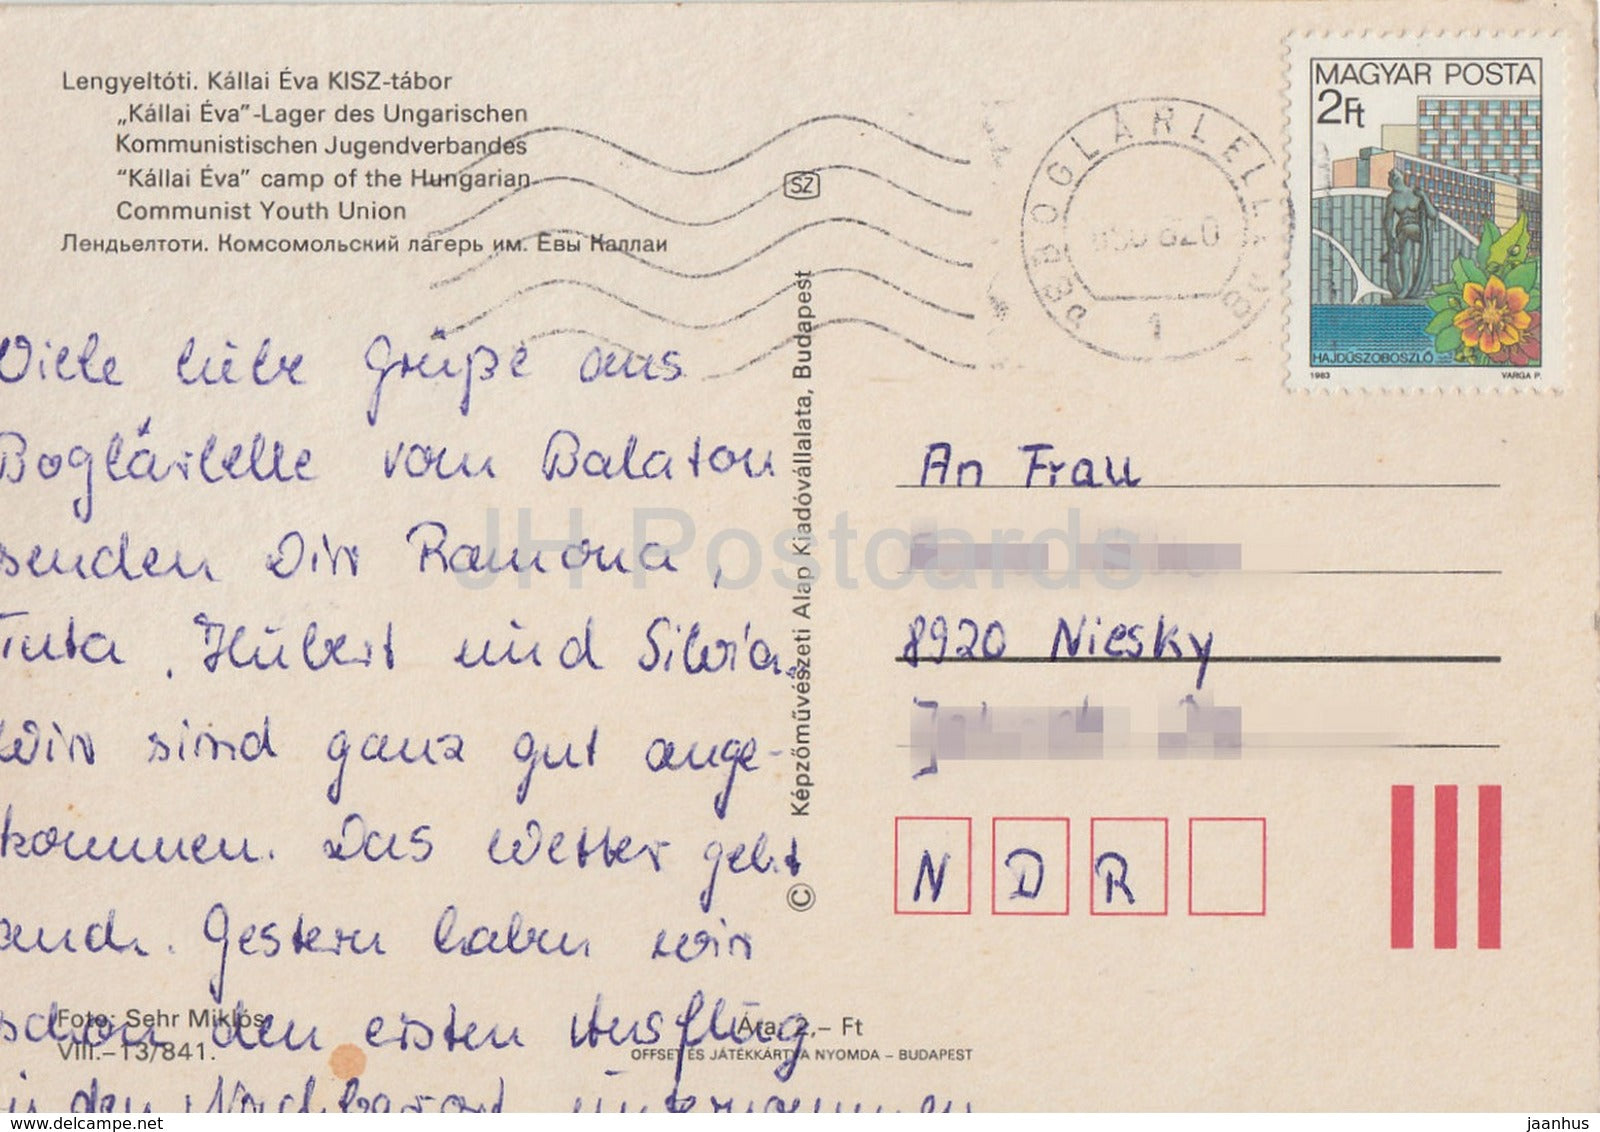 Lengyeltóti. Kállai Éva KISZ-tábor
„Kállai Éva”-Lager des Ungarischen
Kommunistischen Jugendverbandes
“Kállai Éva” camp of the Hungarian
Communist Youth Union
Лендьелтоти. Комсомольский лагерь им. Евы Каллаи
SZ
BOGLÁRLELLE
1
MAGYAR POSTA
2Ft
HAJDÚSZOBOSZLÓ
1983 VARGA P.
Viele liebe Grüße aus
Boglárlelle vom Balaton
senden Dir Ramona,
Juta, Hubert und Silvia.
Wir sind ganz gut ange-
kommen. Das Wetter geht
auch. Gestern haben wir
schon den ersten Ausflug
in den Nachbarort unternommen
Képzőművészeti Alap Kiadóvállalata, Budapest
©
An Frau
8920 Niesky
N D R
Foto: Sehr Miklós
VIII.–13/841.
Ára: 2,– Ft
OFFSET ÉS JÁTÉKKÁRTYA NYOMDA – BUDAPEST
JH Postcards
www.delcampe.net
jaanhus